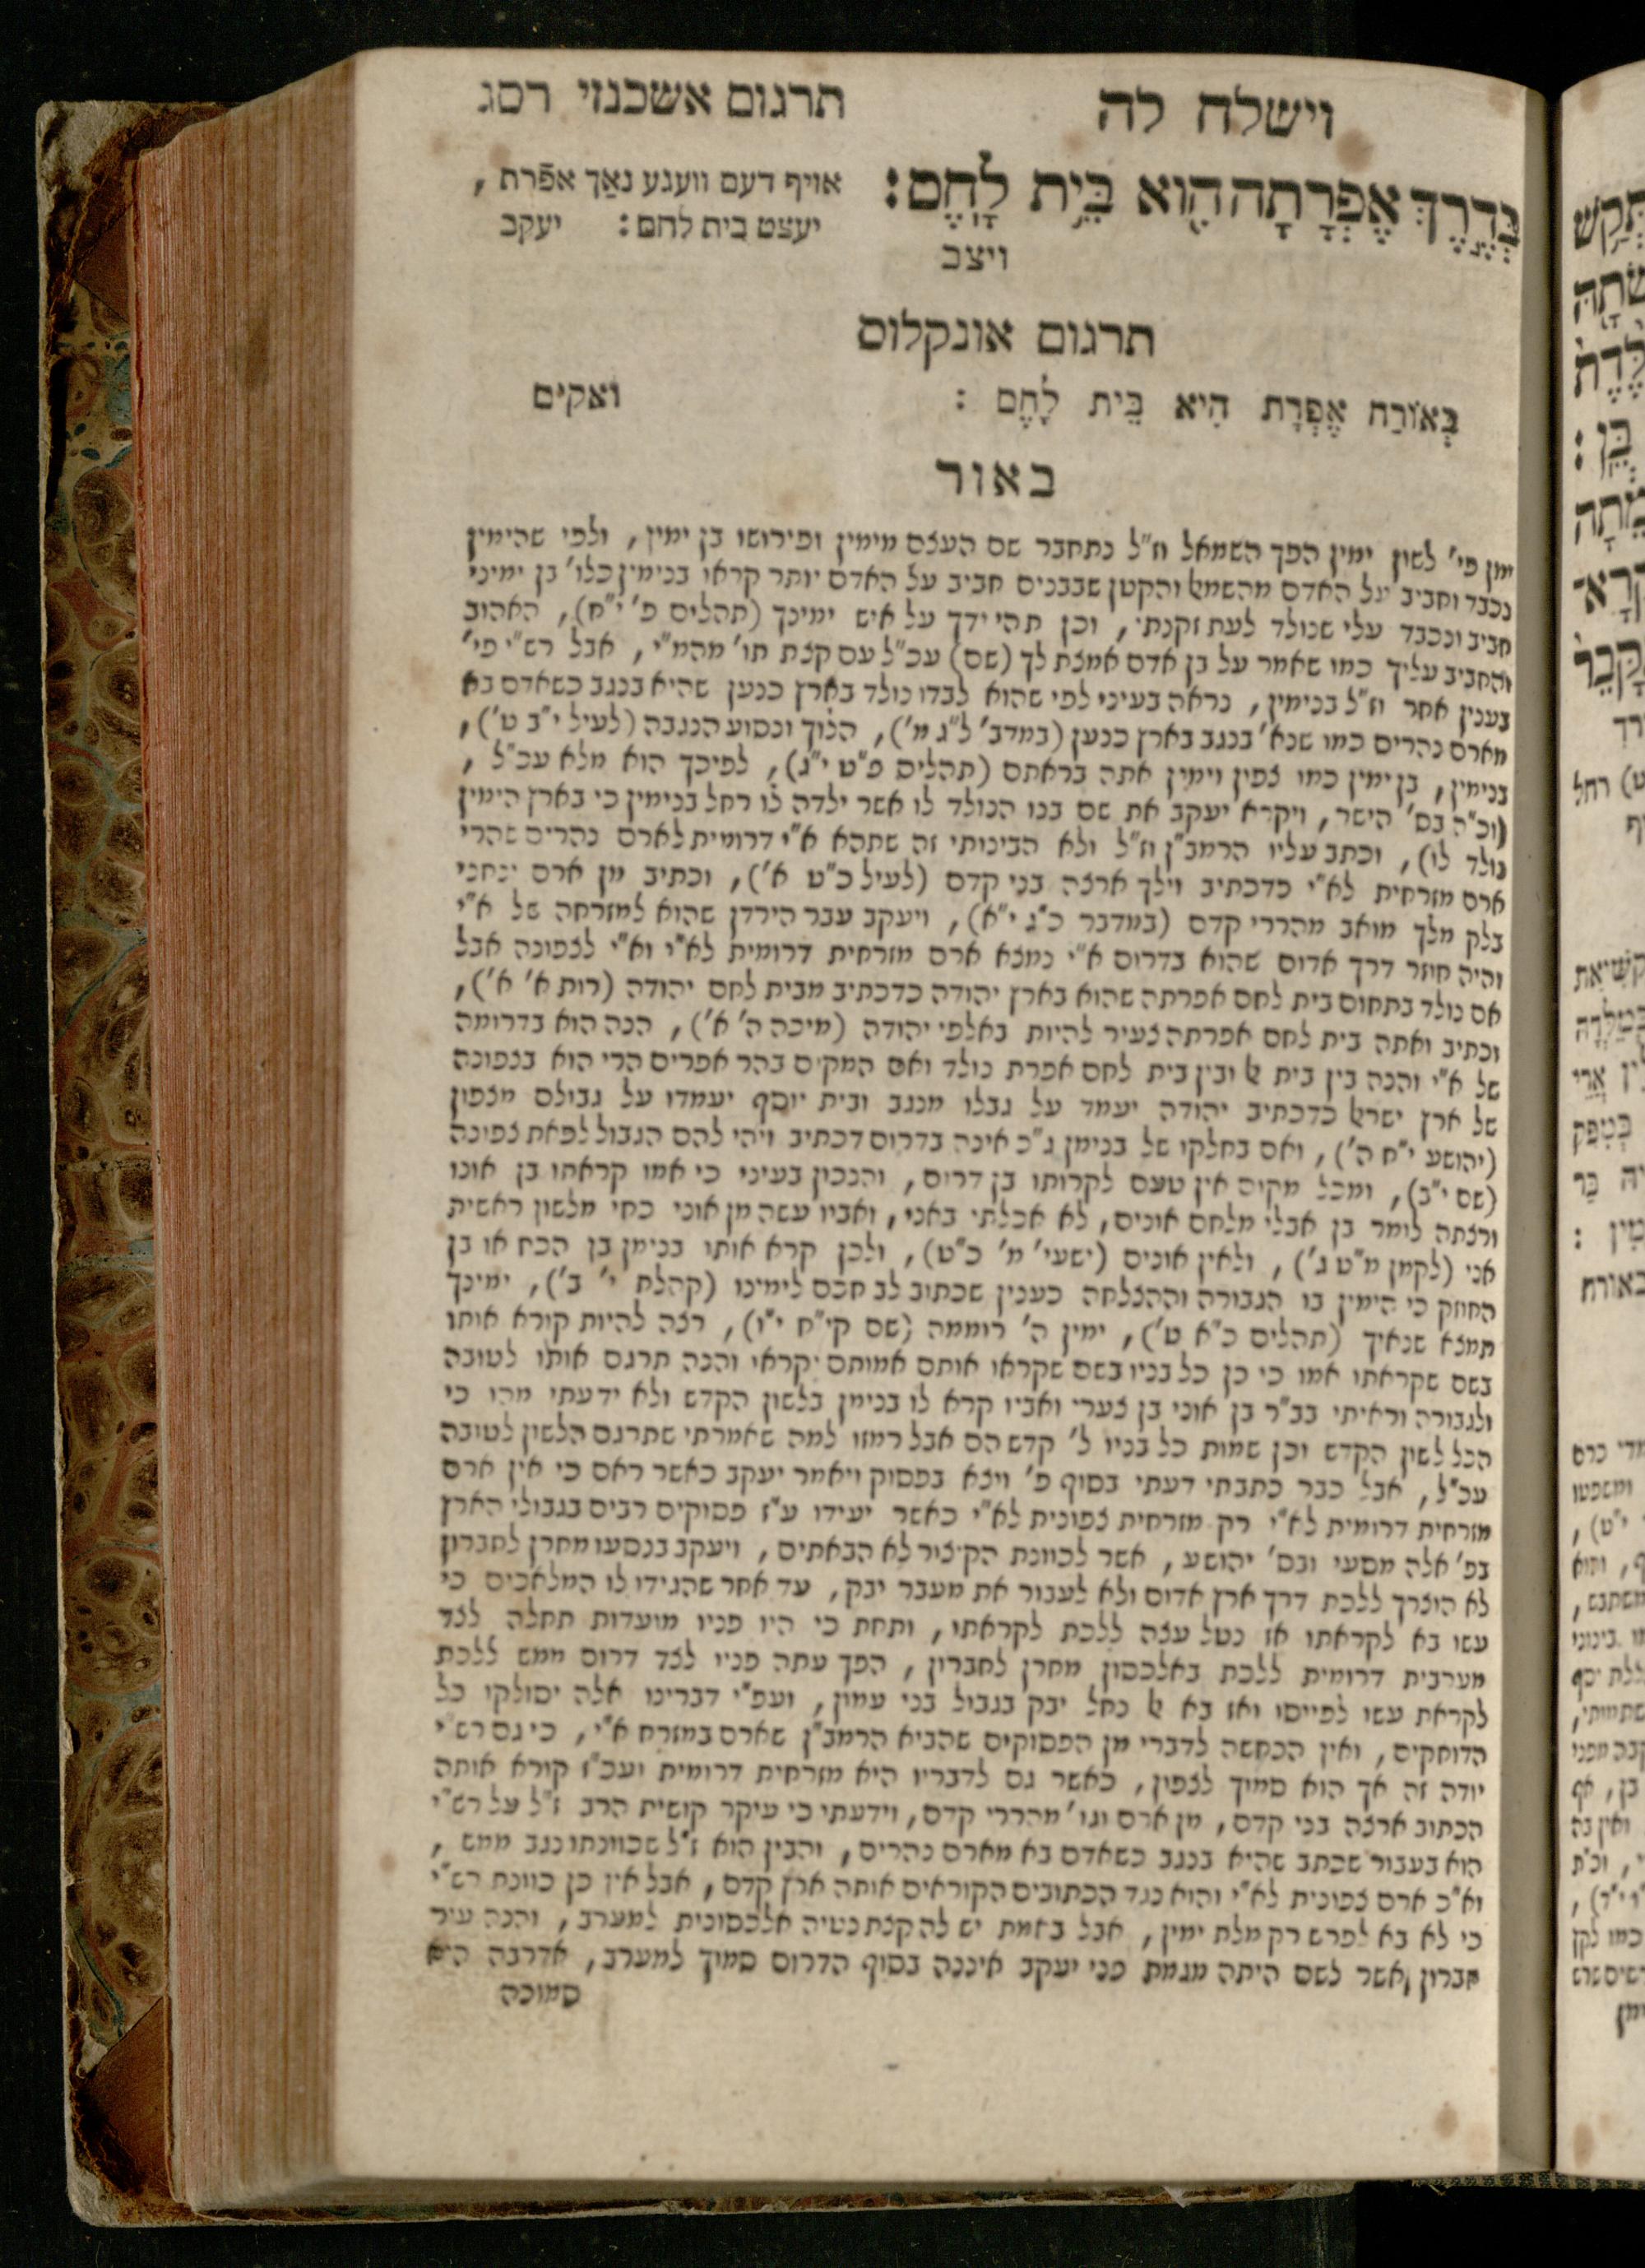 וישלח לה
תרגום אשכנזי רסג
בְּדֶ֣רֶךְ אֶפְרָ֔תָה הִ֖וא בֵּ֥ית לָֽחֶם׃
ויצב
אויף דעם וועגע נאַך אפֿרת ,
יעצט בית לחם : יעקב
תרגום אונקלוס
בְּאוֹרַח אֶפְרָת הִיא בֵּית לָחֶם : ואקים
באור
ימין פי' לשון ימין הפך השמאל וז"ל נתחבר שם העצם מימין ופירושו בן ימין, ולפי שהימין
נכבד וחביב על האדם מהשמאל והקטן שבבנים חביב על האדם יותר קראו בנימין כלו' בן ימיני
חביב ונכבד עלי שנולד לעת זקנתי, וכן תהי ידך על איש ימינך (תהלים פ' י"ח), האהוב
והחביב עליך כמו שאמר על בן אדם אמצת לך (שם) עכ"ל עם קצת תו' מהמ"י, אבל רש"י פי'
בענין אחר וז"ל בנימין, נראה בעיני לפי שהוא לבדו נולד בארץ כנען שהיא בנגב כשאדם בא
מארם נהרים כמו שנא' בנגב בארץ כנען (במדב' ל"ג מ'), הלוך ונסוע הנגבה (לעיל י"ב ט'),
בנימין, בן ימין כמו צפון וימין אתה בראתם (תהלים פ"ט י"ג), לפיכך הוא מלא עכ"ל,
(וכ"ה בס' הישר, ויקרא יעקב את שם בנו הנולד לו אשר ילדה לו רחל בנימין כי בארץ הימין
נולד לו), וכתב עליו הרמב"ן וז"ל ולא הבינותי זה שתהא א"י דרומית לארם נהרים שהרי
ארם מזרחית לא"י כדכתיב וילך ארצה בני קדם (לעיל כ"ט א'), וכתיב מן ארם ינחני
בלק מלך מואב מהררי קדם (במדבר כ"ג י"א), ויעקב עבר הירדן שהוא למזרחה של א"י
והיה חוזר דרך אדום שהוא בדרום א"י נמצא ארם מזרחית דרומית לא"י וא"י לצפונה אבל
אם נולד בתחום בית לחם אפרתה שהוא בארץ יהודה כדכתיב מבית לחם יהודה (רות א' א'),
וכתיב ואתה בית לחם אפרתה צעיר להיות באלפי יהודה (מיכה ה' א'), הנה הוא בדרומה
של א"י והנה בין בית אל ובין בית לחם אפרת נולד ואם המקום בהר אפרים הרי הוא בצפונה
של ארץ ישראל כדכתיב יהודה יעמד על גבלו מנגב ובית יוסף יעמדו על גבולם מצפון
(יהושע י"ח ה'), ואם בחלקו של בנימן ג"כ אינה בדרום דכתיב ויהי להם הגבול לפאת צפונה
(שם י"ב), ומכל מקום אין טעם לקרותו בן דרום, והנכון בעיני כי אמו קראתו בן אוני
ורצתה לומר בן אבלי מלחם אונים, לא אכלתי באני, ואביו עשה מן אוני כחי מלשון ראשית
אני (לקמן מ"ט ג'), ולאין אונים (ישעי' מ' כ"ט), ולכן קרא אותו בנימן בן הכח או בן
החוזק כי הימין בו הגבורה וההצלחה כענין שכתוב לב חכם לימינו (קהלת י' ב'), ימינך
תמצא שנאיך (תהלים כ"א ט'), ימין ה' רוממה (שם קי"ח י"ו), רצה להיות קורא אותו
בשם שקראתו אמו כי כן כל בניו בשם שקראו אותם אמותם יקראי והנה תרגם אותו לטובה
ולגבורה וראיתי בב"ר בן אוני בן צערי ואביו קרא לו בנימן בלשון הקדש ולא ידעתי מהו כי
הכל לשון הקדש וכן שמות כל בניו ל' קדש הם אבל רמזו למה שאמרתי שתרגם הלשון לטובה
עכ"ל, אבל כבר כתבתי דעתי בסוף פ' ויצא בפסוק ויאמר יעקב כאשר ראם כי אין ארם
מזרחית דרומית לא"י רק מזרחית צפונית לא"י כאשר יעידו ע"ז פסוקים רבים בגבולי הארץ
בפ' אלה מסעי ובס' יהושע, אשר לכוונת הקיצור לא הבאתים, ויעקב בנסעו מחרן לחברון
לא הוצרך ללכת דרך ארץ אדום ולא לעבור את מעבר יבק, עד אחר שהגידו לו המלאכים כי
עשו בא לקראתו אז נטל עצה ללכת לקראתו, ותחת כי היו פניו מועדות תחלה לצד
מערבית דרומית ללכת באלכסון מחרן לחברון, הפך עתה פניו לצד דרום ממש ללכת
לקראת עשו לפייסו ואז בא אל נחל יבק בגבול בני עמון, ועפ"י דברינו אלה יסולקו כל
הדוחקים, ואין הכחשה לדברי מן הפסוקים שהביא הרמב"ן שארם במזרח א"י, כי גם רש"י
יודה זה אך הוא סמוך לצפון, כאשר גם לדבריו היא מזרחית דרומית ועכ"ז קורא אותה
הכתוב ארצה בני קדם, מן ארם וגו' מהררי קדם, וידעתי כי עיקר קושית הרב ז"ל על רש"י
הוא בעבור שכתב שהיא בנגב כשאדם בא מארם נהרים, והבין הוא ז"ל שכוונתו נגב ממש,
וא"כ ארם צפונית לא"י והוא נגד הכתובים הקוראים אותה ארץ קדם, אבל אין כן כוונת רש"י
כי לא בא לפרש רק מלת ימין, אבל באמת יש לה קצת נטיה אלכסונית למערב, והנה עיר
חברון אשר לשם היתה מגמת פני יעקב איננה בסוף הדרום סמוך למערב, אדרבה היא
סמוכה